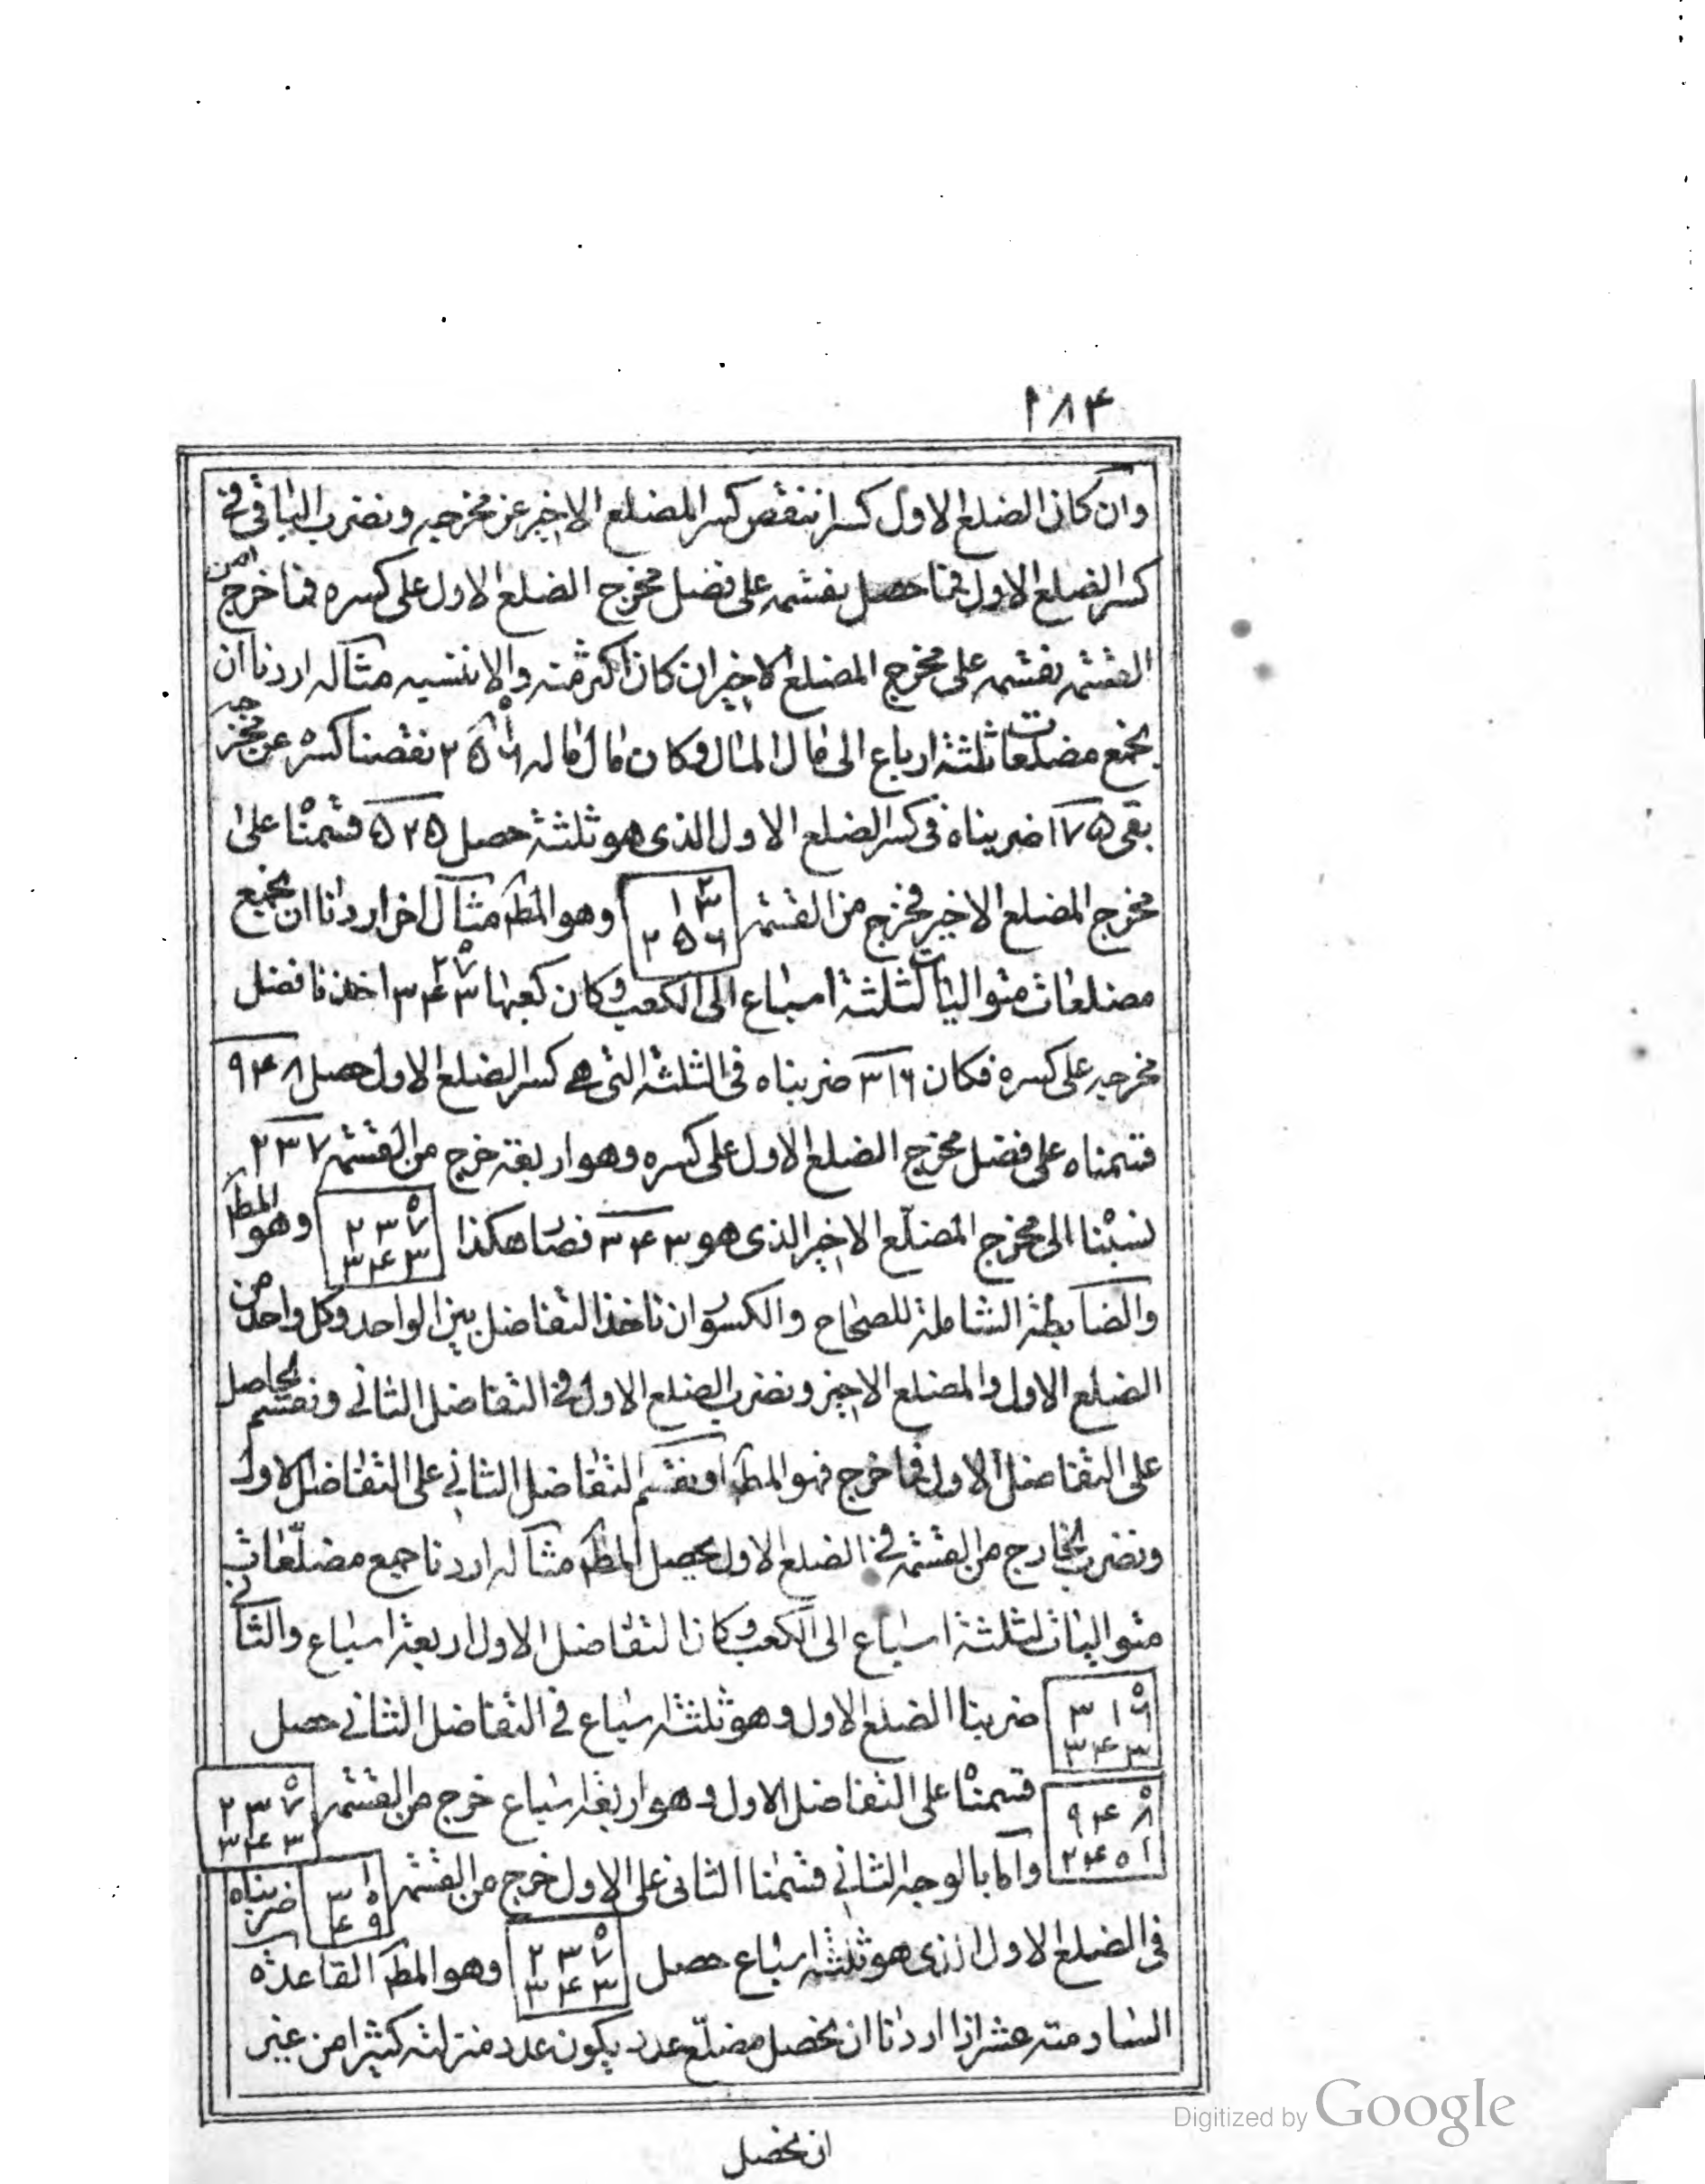 ١٨٤
وان كان الضلع الاول كسرا ننقص كسر المضلع الاخير عن مخرجه ونضرب الباقى فى
كسر الضلع الاول فما حصل نقسمه على فضل مخرج الضلع الاول على كسره فما خرج من
القسمة نقسمه على مخرج المضلع الاخير ان كان اكثر منه والا ننسبه مثاله اردنا ان
نجمع مضلعات ثلثة ارباع الى مال المال وكان مال ماله ٨١ ٢٥٦ نقصنا كسره عن مخرجه
بقى ١٧٥ ضربناه فى كسر الضلع الاول الذى هو ثلثة حصل ٥٢٥ قسمناه على
مخرج المضلع الاخير فخرج من القسمة ٢ ١٣ ٢٥٦ وهو المط مثال اخر اردنا ان نجمع
مضلعات متواليات لثلثة اسباع الى الكعب وكان كعبها ٢٧ ٣٤٣ اخذنا فضل
مخرجه على كسره فكان ٣١٦ ضربناه فى الثلثة التى هى كسر الضلع الاول حصل ٩٤٨
قسمناه على فضل مخرج الضلع الاول على كسره وهو اربعة خرج من القسمة ٢٣٧
نسبنا الى مخرج المضلع الاخير الذى هو ٣٤٣ فصار هكذا ٢٣٧ ٣٤٣ وهو المط
والضابطة الشاملة للصحاح والكسور ان ناخذ التفاضل بين الواحد وكل واحد من
الضلع الاول والمضلع الاخير ونضرب الضلع الاول فى التفاضل الثانى ونقسم الحاصل
على التفاضل الاول فما خرج فهو المط او نقسم التفاضل الثانى على التفاضل الاول
ونضرب الخارج من القسمة فى الضلع الاول يحصل المط مثاله اردنا جمع مضلعات
متواليات لثلثة اسباع الى الكعب وكان التفاضل الاول اربعة اسباع والثانى
٣١٦ ٣٤٣ ضربنا الضلع الاول وهو ثلثة اسباع فى التفاضل الثانى حصل
٩٤٨ ٢٤٠١ قسمناه على التفاضل الاول وهو اربعة اسباع خرج من القسمة ٢٣٧ ٣٤٣
واما بالوجه الثانى قسمنا الثانى على الاول خرج من القسمة ١ ٣٠ ٤٩ ضربناه
فى الضلع الاول الذى هو ثلثة اسباع حصل ٢٣٧ ٣٤٣ وهو المط القاعدة
السادسة عشر اذا اردنا ان نحصل مضلع عدد يكون عدد منزلته كثيرا من غير
ان نحصل
Digitized by Google